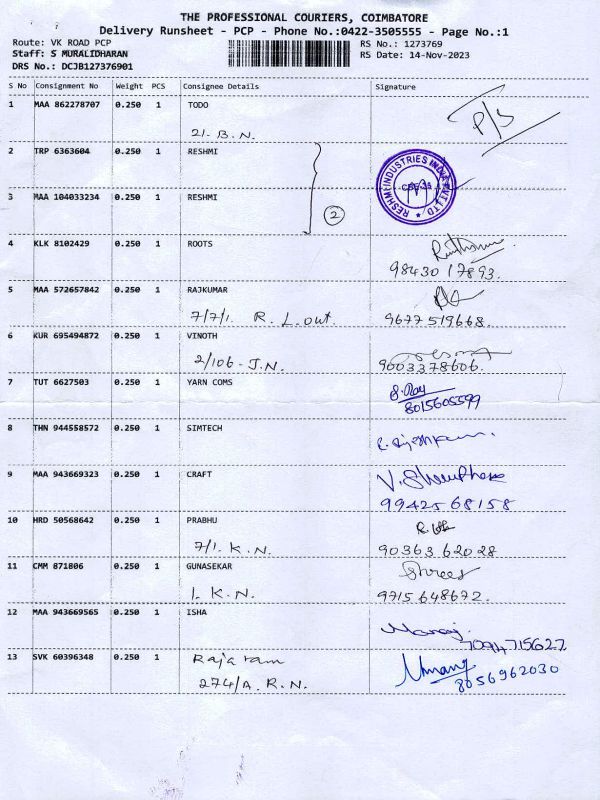 THE PROFESSIONAL COURIERS, COIMBATORE
Delivery Runsheet - PCP - Phone No.:0422-3505555 - Page No.:1
Route: VK ROAD PCP RS No.: 1273769
Staff: S MURALIDHARAN RS Date: 14-Nov-2023
DRS No.: DCJB127376901
S No Consignment No Weight PCS Consignee Details Signature
1 MAA 862278707 0.250 1 TODO P/S
21. B.N.
2 TRP 6363604 0.250 1 RESHMI
RESHMI INDUSTRIES INDIA PVT LTD
CBE-35
3 MAA 104033234 0.250 1 RESHMI
2
4 KLK 8102429 0.250 1 ROOTS
98430 17893.
5 MAA 572657842 0.250 1 RAJKUMAR
7/7/1. R. L. out. 9677519668.
6 KUR 695494872 0.250 1 VINOTH
2/106 - J.N. 9003378606.
7 TUT 6627503 0.250 1 YARN COMS
8015605599
8 THN 944558572 0.250 1 SIMTECH
9 MAA 943669323 0.250 1 CRAFT
9942568158
10 HRD 50568642 0.250 1 PRABHU
7/1. K.N. 90363 62028
11 CMM 871806 0.250 1 GUNASEKAR
1. K.N. 9715648672.
12 MAA 943669565 0.250 1 ISHA
Manoj. 7094715627
13 SVK 60396348 0.250 1 Rajaram
274/A. R.N. 8056962030